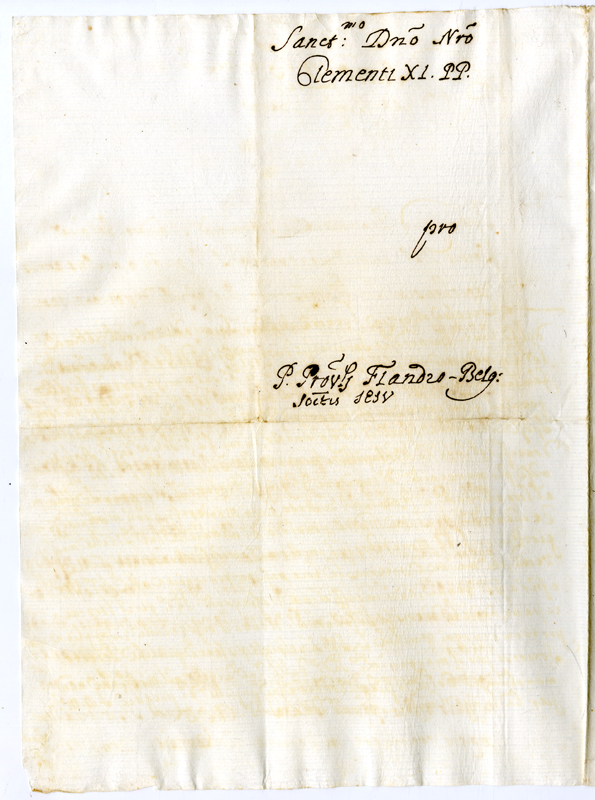 Sanct:mo Dnō Nrō
Clementi XI. PP.
pro
P. Prov̄lj Flandro-Belg:
Soc̄tis IESV